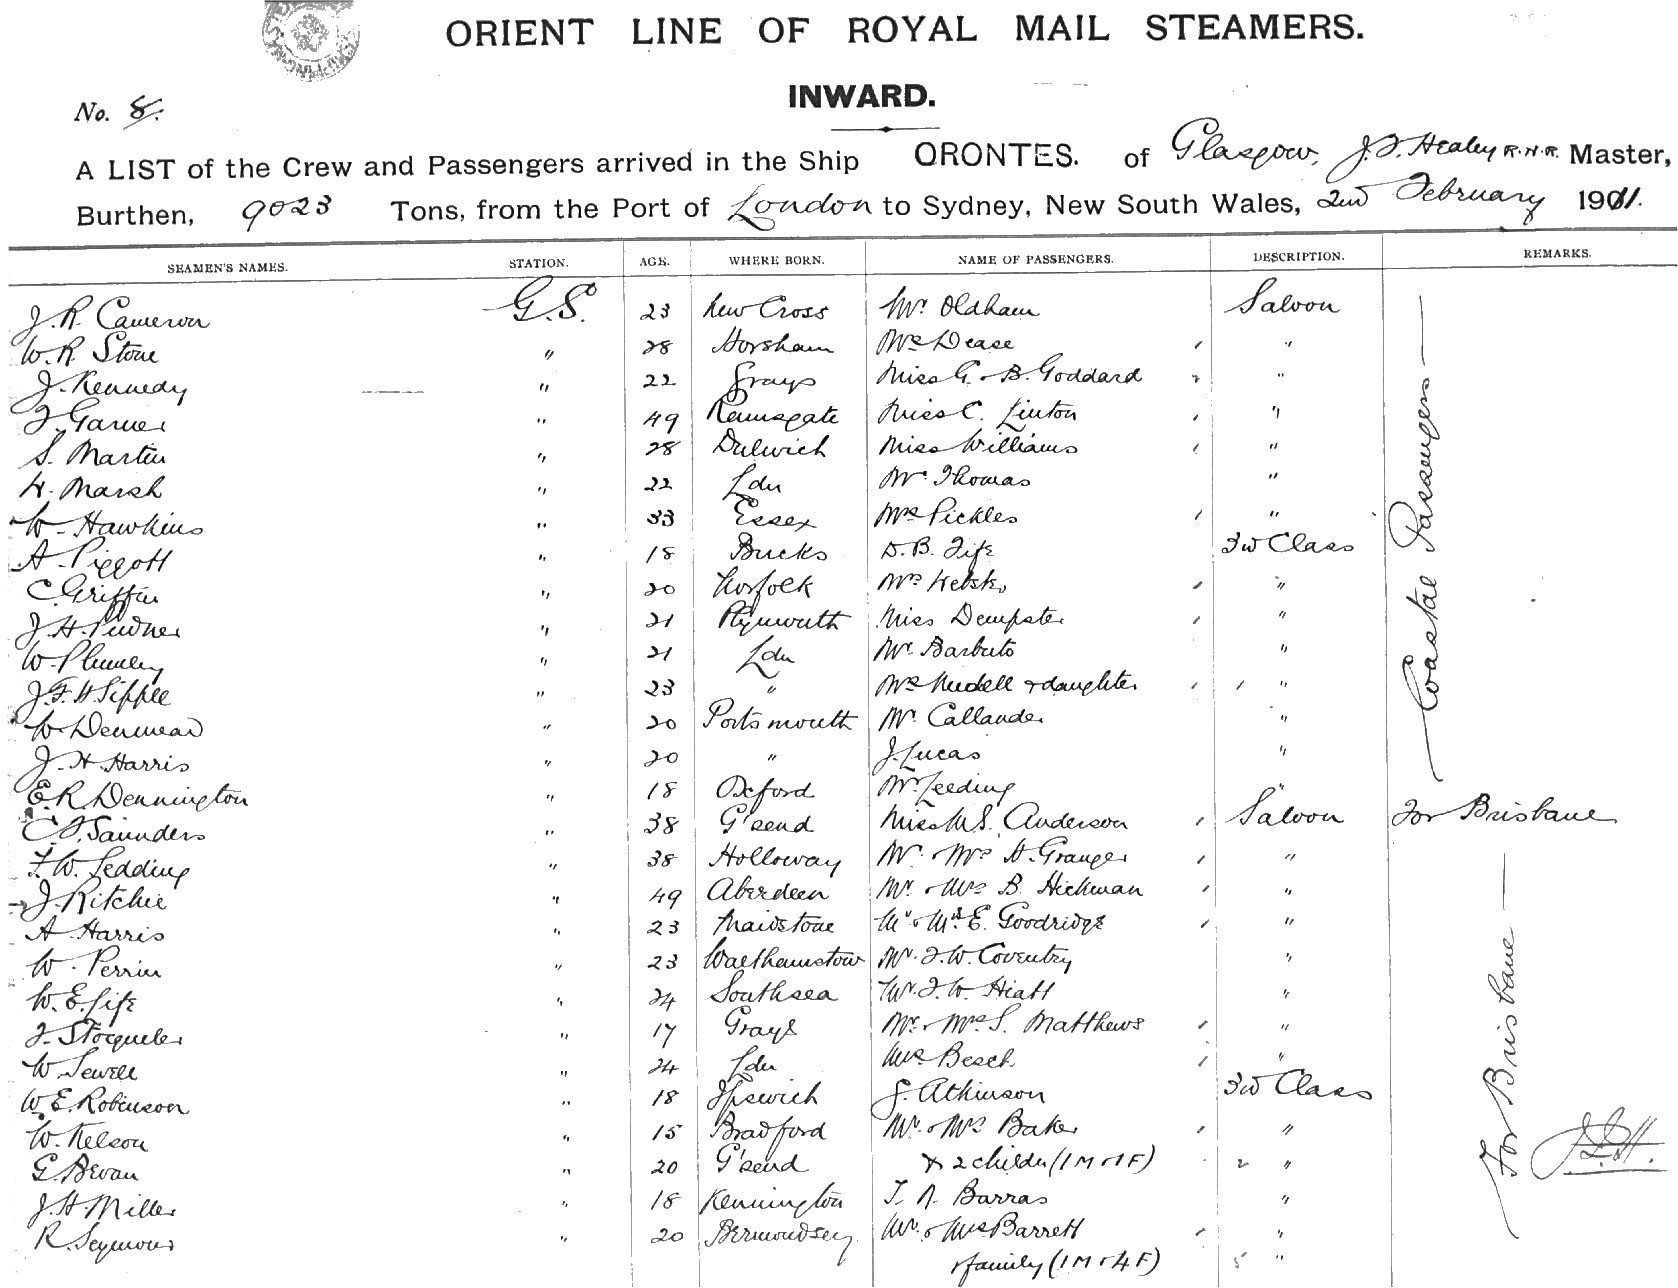 ORIENT LINE OF ROYAL MAIL STEAMERS.
INWARD.
No. 8.
A LIST of the Crew and Passengers arrived in the Ship ORONTES. of Glasgow, J.F. Healey R.N.R. Master,
Burthen, 9023 Tons, from the Port of London to Sydney, New South Wales, 2nd February 1911.
SEAMEN'S NAMES. STATION. AGE. WHERE BORN. NAME OF PASSENGERS. DESCRIPTION. REMARKS.
J. R. Cameron G.S. 23 New Cross Mr. Oldham Saloon
W. R. Stone " 28 Horsham Mrs Dease "
J. Kennedy " 22 Grays Miss G. & B. Goddard "
F. Garner " 49 Ramsgate Miss C. Linton "
S. Martin " 28 Dulwich Miss Williams "
H. Marsh " 22 Ldn Mr Thomas "
W. Hawkins " 33 Essex Mrs Pickles "
A. Piggott " 18 Bucks D. B. Fife 3rd Class
C. Griffin " 20 Norfolk Mrs "
J. H. Pudner " 21 Plymouth Miss Dempster "
W. Plumley " 21 Ldn Mr. Barbuto "
J. F. H. Sipple " 23 " Mrs & daughter "
W. Denmead " 20 Portsmouth Mr. Callander "
J. H. Harris " 20 " J. Lucas "
E. R. Dennington " 18 Oxford Mr. Leeding "
C. F. Saunders " 38 G'send Miss M. S. Anderson Saloon For Brisbane
F. W. Ledding " 38 Holloway Mr. & Mrs H. Granger "
J. Ritchie " 49 Aberdeen Mr. & Mrs B. Hickman "
A. Harris " 23 Maidstone Mr & Mrs. E. Goodridge "
W. Perrin " 23 Walthamstow Mr. F. W. Coventry "
W. E. Fife " 24 Southsea Mr. F. W. Hiatt "
F. Stocqueler " 17 Grays Mr. & Mrs S. Matthews "
W. Sewell " 24 Ldn Mrs Besch "
W. E. Robinson " 18 Ipswich J. Atkinson 3rd Class
W. Nelson " 15 Bradford Mr. & Mrs Baker "
G. Bevan " 20 G'send & 2 childn (1 M & 1 F) 2 "
J. H. Miller " 18 Kennington T. A. Barras "
R. Seymour " 20 Bermondsey Mr. & Mrs Barrett "
& family (1 M & 4 F) 5 "
Coastal Passengers
For Brisbane
J.F.H.